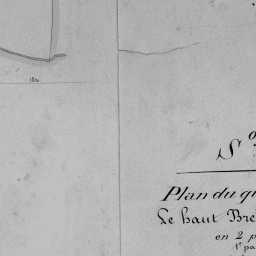 S°
Plan du qu
Le haut Bre
en 2 p
1e pa